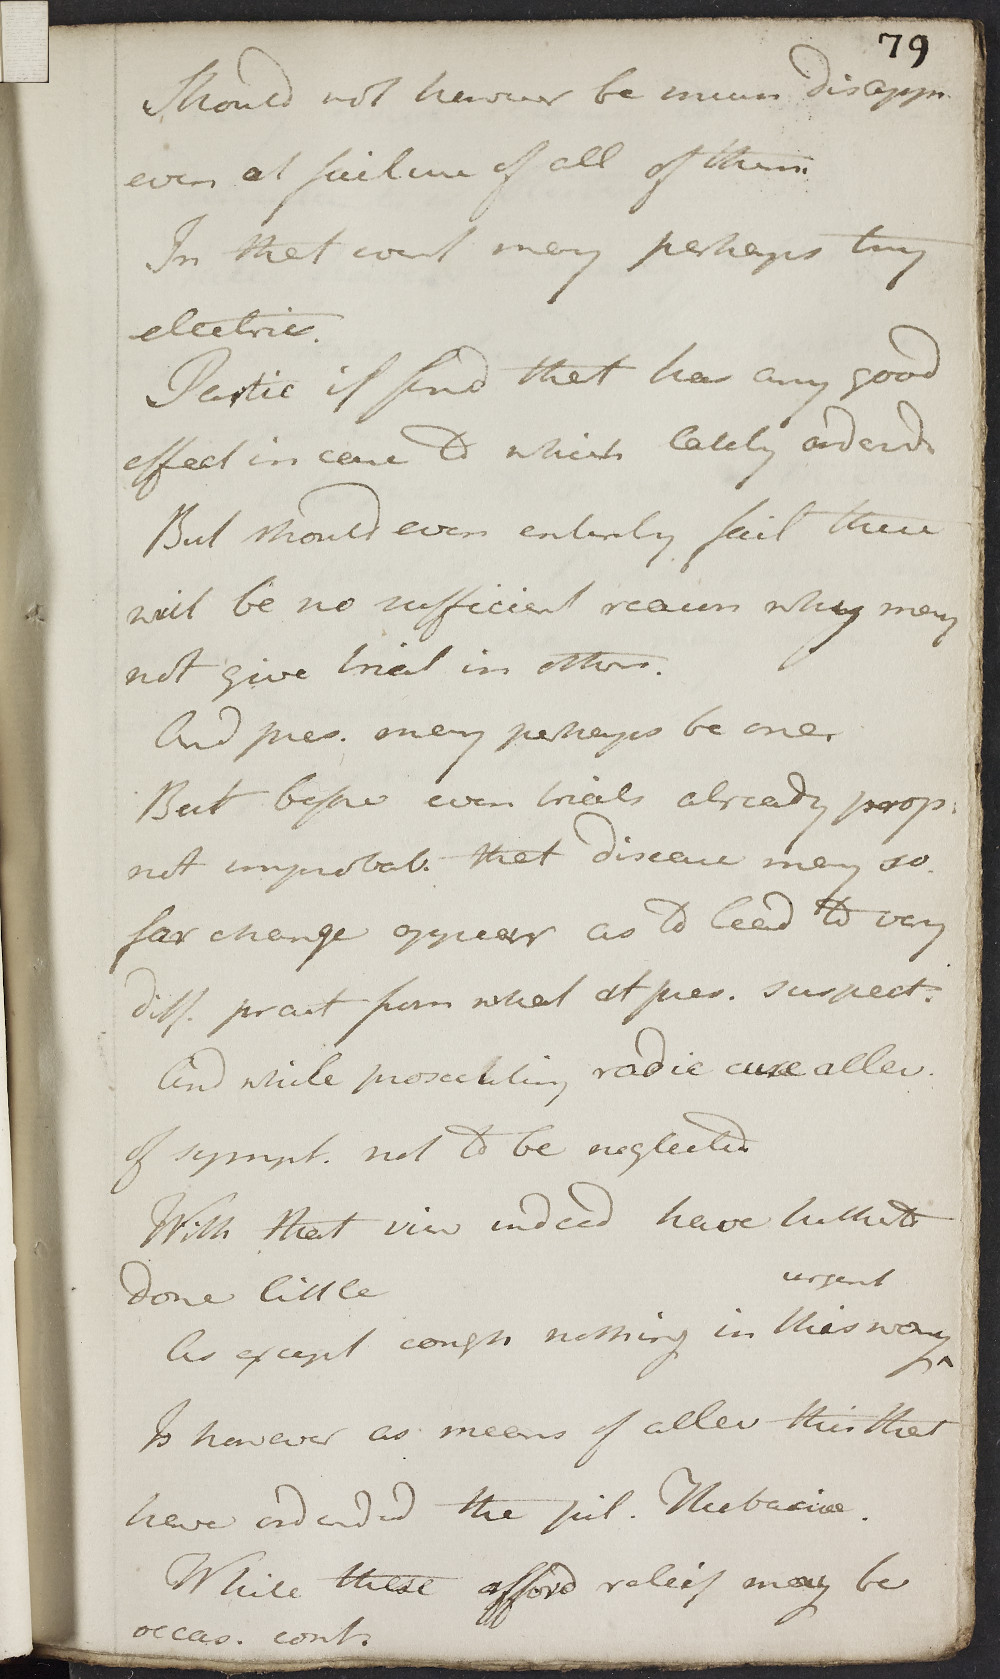 79
Should not however be much disappn
even at failure of all of them
In that event may perhaps try
electric.
Partic if find that has any good
effect in case to which lately orderd
But should even entirely fail there
will be no sufficient reason why may
not give trial in others.
And pres. may perhaps be one.
But before even trials already prop.
not improbab. that disease may so
far change appear as to lead to very
diff. pract from what at pres. suspect.
And while prosecuting radic cure allev.
of sympt. not to be neglected
With that view indeed have hitherto
done little
urgent
As except cough nothing in this way ^
Is however as means of allev this that
have ordended the pil. Thebaicae.
While these afford relief may be
occas. cont.